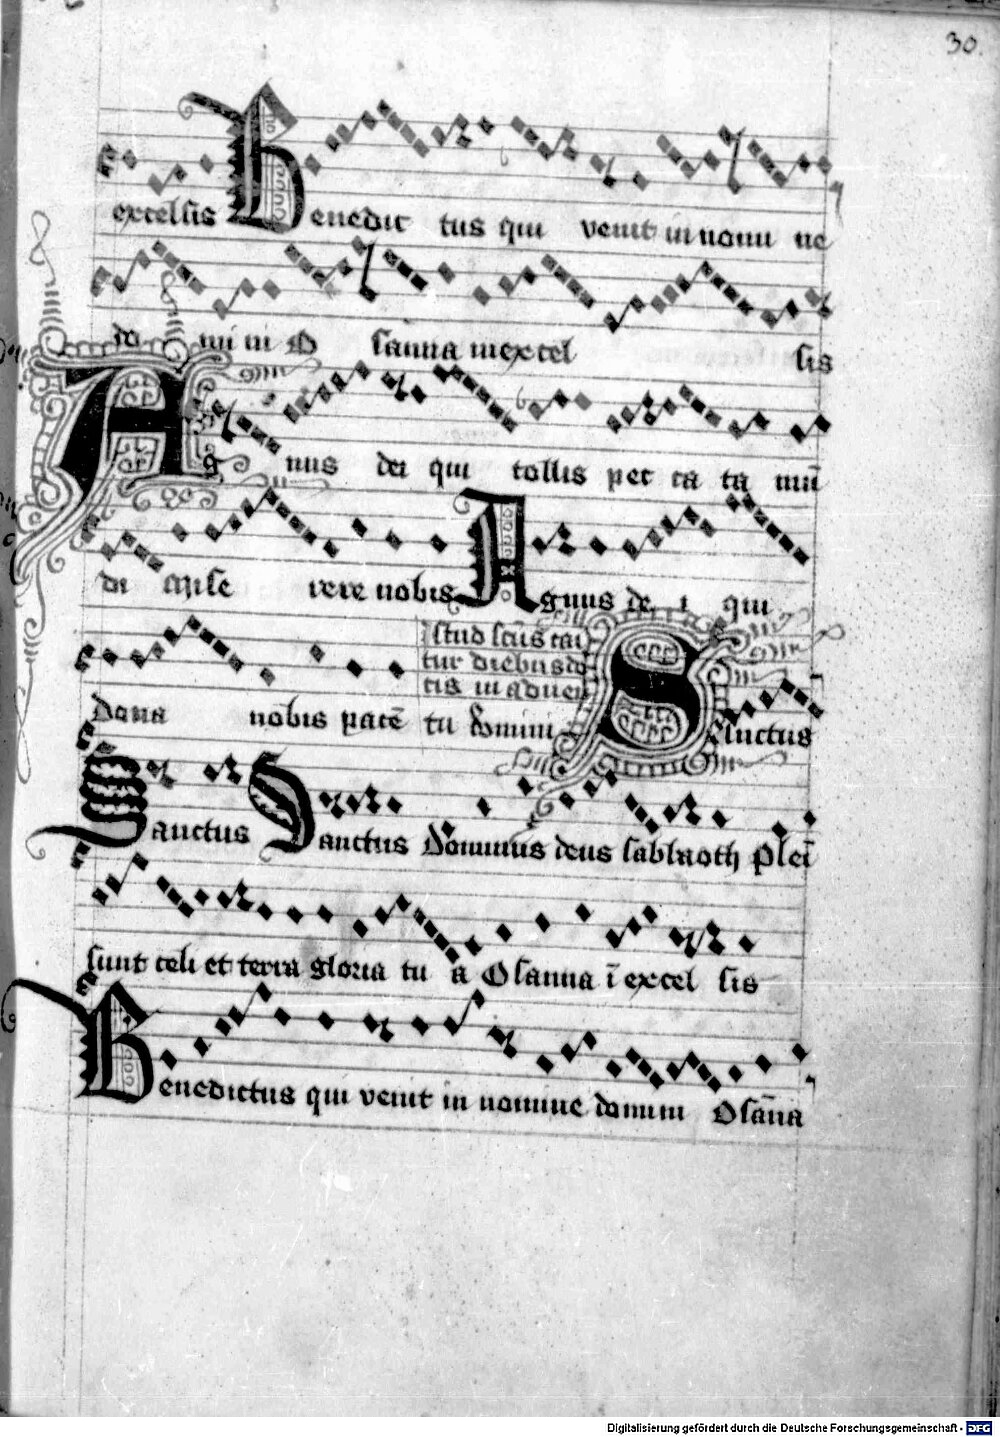 30.
excelsis Benedic tus qui venit in nomi ne
do mi ni O sanna in excel sis
Ag nus dei qui tollis pec ca ta mū
di Mise rere nobis Agnus de i qui
Istud scūs cāī
tur diebus do
cis in aduen
Dona nobis pacē tu domini Sanctus
Sanctus Sanctus Dominus deus sabbaoth Pleī
sunt celi et terra gloria tu a Osanna ī excel sis
Benedictus qui venit in nomine domini Osāna
Digitalisierung gefördert durch die Deutsche Forschungsgemeinschaft - DFG